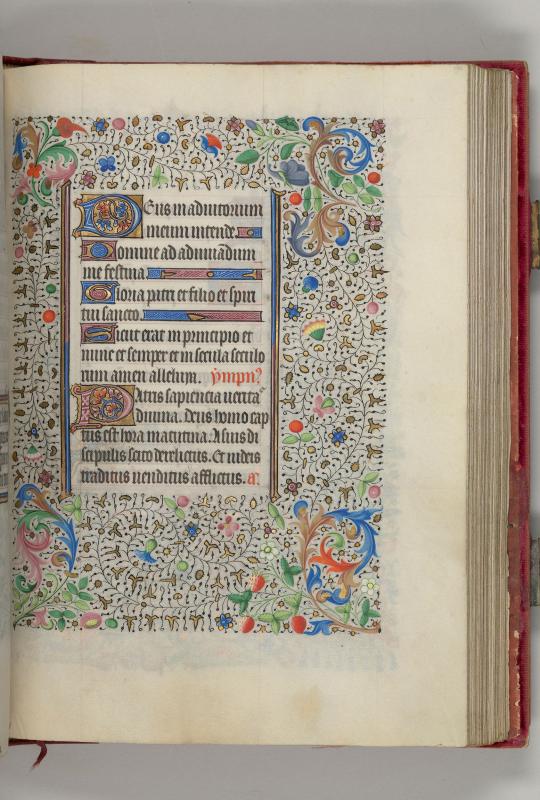 Deus in adiutorium
meum intende.
Domine ad adiuuādum
me festina.
Gloria patri et filio et spiri
tui sancto.
Sicut erat in principio et
nunc et semper et in secula seculo
rum amen alleluya. ympnꝰ
Patris sapiencia uerita
diuina. Deus homo cap
tus est hora matutina. A suis di
scipulis scito derelictus. Et iudeis
traditus uenditus afflictus. a.